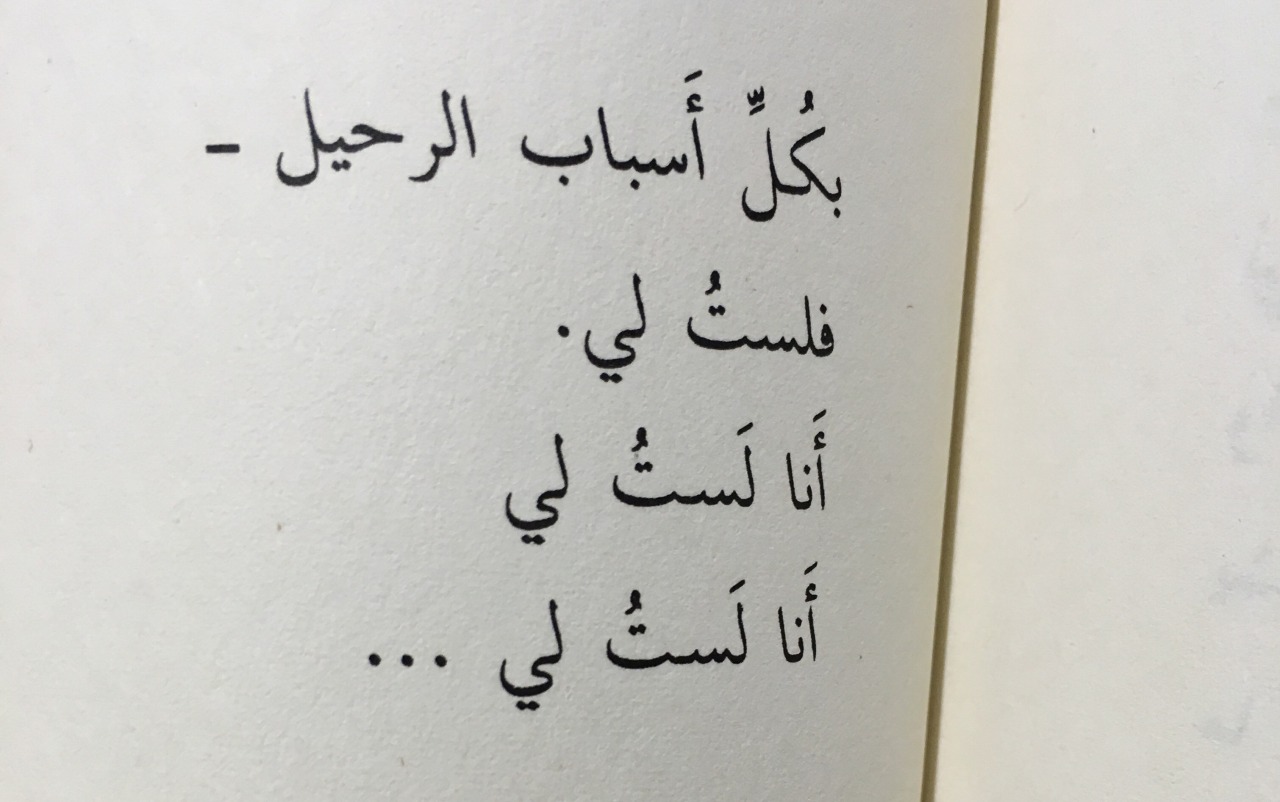 بكُلِّ أَسباب الرحيل -
فلستُ لي.
أَنا لَستُ لي
أَنا لَستُ لي ...